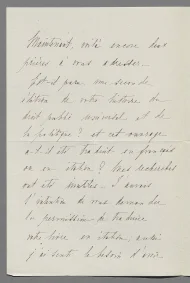 Maintenant, voilà encore deux
prières à vous adresser.
Est-il paru une seconde
édition de votre histoire du
droit public universel et de
la politique? et cet ouvrage
a-t-il été traduit en français
ou en italien? Mes recherches
ont été inutiles. J'aurais
l'intention de vous demander
la permission de traduire
votre livre en italien, mais
j'ai senti le besoin d'avoir